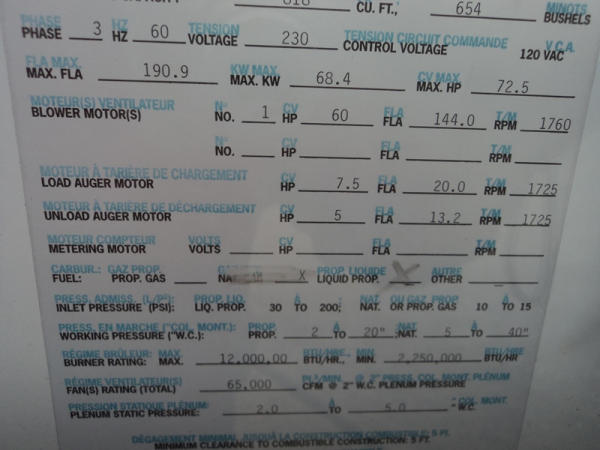 818 CU. FT., 654 MINOTS BUSHELS
PHASE HZ TENSION TENSION CIRCUIT COMMANDE V.C.A.
PHASE 3 HZ 60 VOLTAGE 230 CONTROL VOLTAGE 120 VAC
FLA MAX. KW MAX. CV MAX.
MAX. FLA 190.9 MAX. KW 68.4 MAX. HP 72.5
MOTEUR(S) VENTILATEUR N° CV FLA T/M
BLOWER MOTOR(S) NO. 1 HP 60 FLA 144.0 RPM 1760
N° CV FLA T/M
NO. HP FLA RPM
MOTEUR À TARIÈRE DE CHARGEMENT CV FLA T/M
LOAD AUGER MOTOR HP 7.5 FLA 20.0 RPM 1725
MOTEUR À TARIÈRE DE DÉCHARGEMENT CV FLA T/M
UNLOAD AUGER MOTOR HP 5 FLA 13.2 RPM 1725
MOTEUR COMPTEUR VOLTS CV FLA T/M
METERING MOTOR VOLTS HP FLA RPM
CARBUR.: GAZ PROP. PROP. LIQUIDE AUTRE
FUEL: PROP. GAS NAT. X LIQUID PROP. X OTHER
PRESS. ADMISS. (L/P²): PROP. LIQ. À NAT. OU GAZ PROP. À
INLET PRESSURE (PSI): LIQ. PROP. 30 TO 200; NAT. OR PROP. GAS 10 TO 15
PRESS. EN MARCHE ("COL. MONT.): PROP. À NAT. À
WORKING PRESSURE ("W.C.): PROP. 2 TO 20" NAT. 5 TO 40"
RÉGIME BRÛLEUR: MAX. BTU/HRE., MIN. BTU/HRE
BURNER RATING: MAX. 12,000,00 BTU/HR., MIN. 2,250,000 BTU/HR
RÉGIME VENTILATEUR(S) PL³/MIN. @ 2" PRESS. COL. MONT. PLÉNUM
FAN(S) RATING (TOTAL) 65,000 CFM @ 2" W.C. PLENUM PRESSURE
PRESSION STATIQUE PLÉNUM: À "COL. MONT.
PLENUM STATIC PRESSURE: 2.0 TO 5.0 "W.C.
DÉGAGEMENT MINIMAL JUSQU'À LA CONSTRUCTION COMBUSTIBLE: 5 PI.
MINIMUM CLEARANCE TO COMBUSTIBLE CONSTRUCTION: 5 FT.